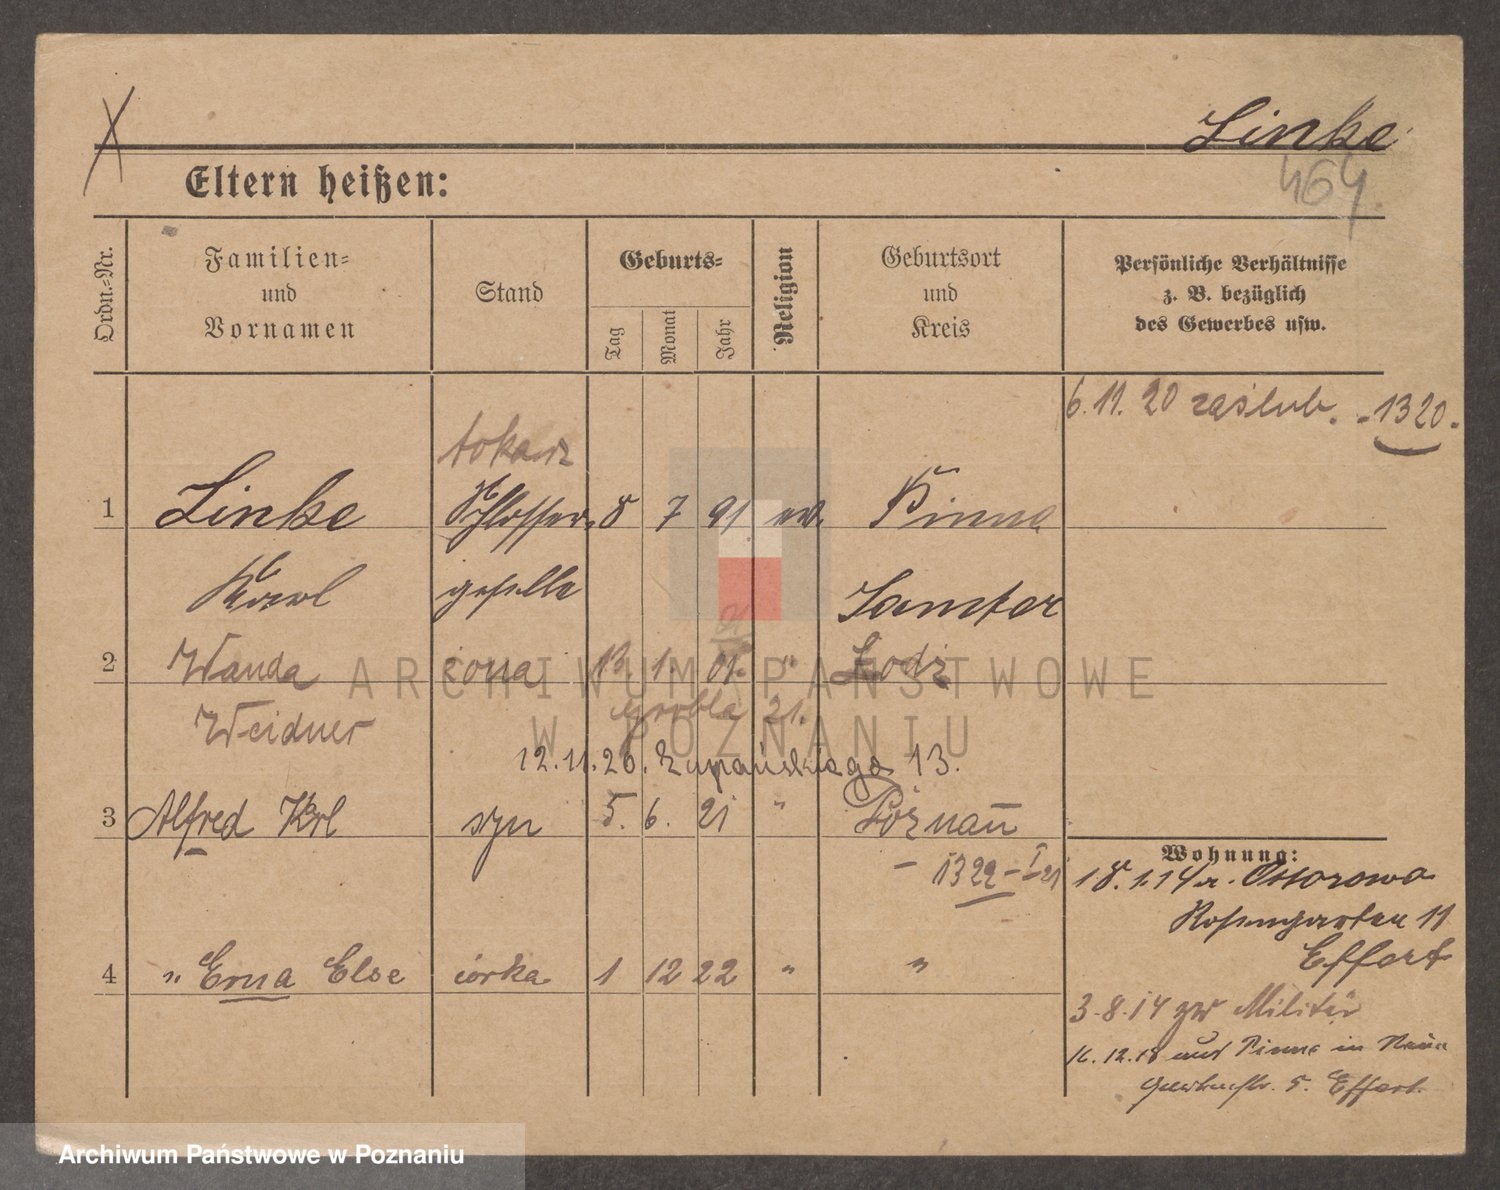 Linke
464.
Eltern heißen:
Ordn.-Nr.
Familien-
und
Vornamen
Stand
Geburts-
Tag
Monat
Jahr
Religion
Geburtsort
und
Kreis
Persönliche Verhältnisse
z. B. bezüglich
des Gewerbes usw.
6.11.20 zaślub. -1320.
tokarz
1 Linke Schlosser 8 7 91 ev. Pinne
Karl geselle Samter
2 Wanda żona 13. 1. 01. " Lodz
Weidner Grobla 21.
12.11.20. Żupańskiego 13.
3 Alfred Karl syn 5. 6. 21 " Poznań
- 1322 - I 21
Wohnung:
18.1.14 v. Ossorowo
Rosengarten 11
Effert
4 " Erna Else córka 1 12 22 " "
3.8.14 zum Militär
16.12.18 aus Pinne in
5. Effert.
ARCHIWUM PAŃSTWOWE
W POZNANIU
Archiwum Państwowe w Poznaniu